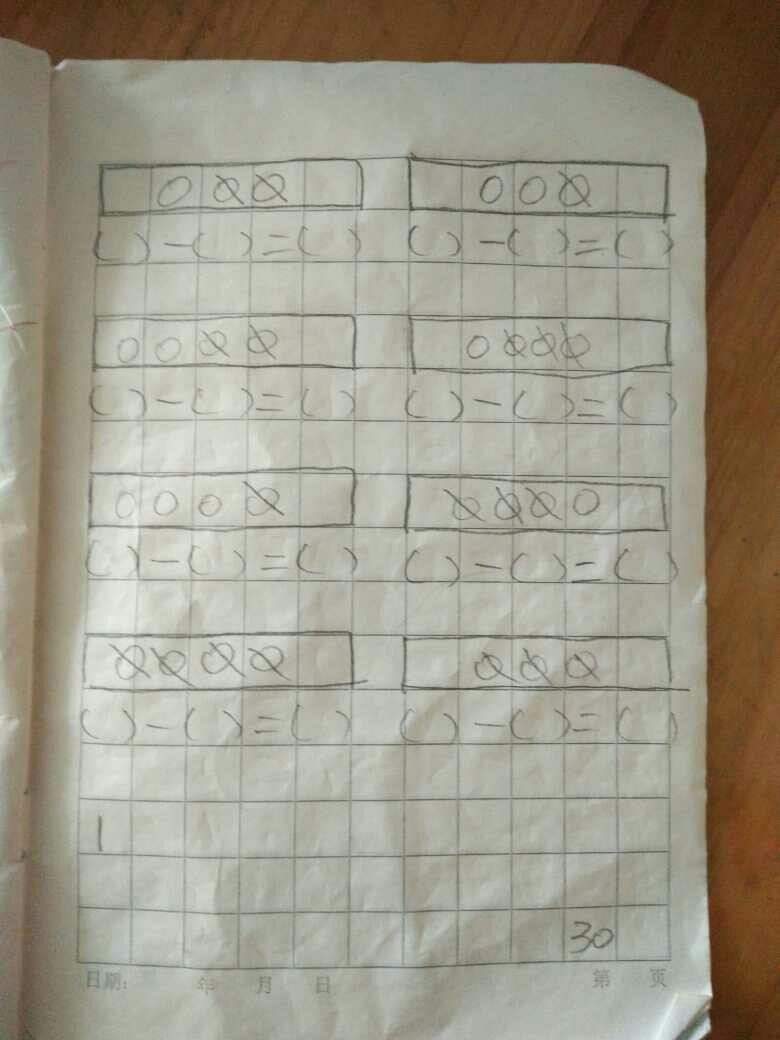 ( ) - ( ) = ( ) ( ) - ( ) = ( )
( ) - ( ) = ( ) ( ) - ( ) = ( )
( ) - ( ) = ( ) ( ) - ( ) = ( )
( ) - ( ) = ( ) ( ) - ( ) = ( )
1
30
日期: 年 月 日 第 页